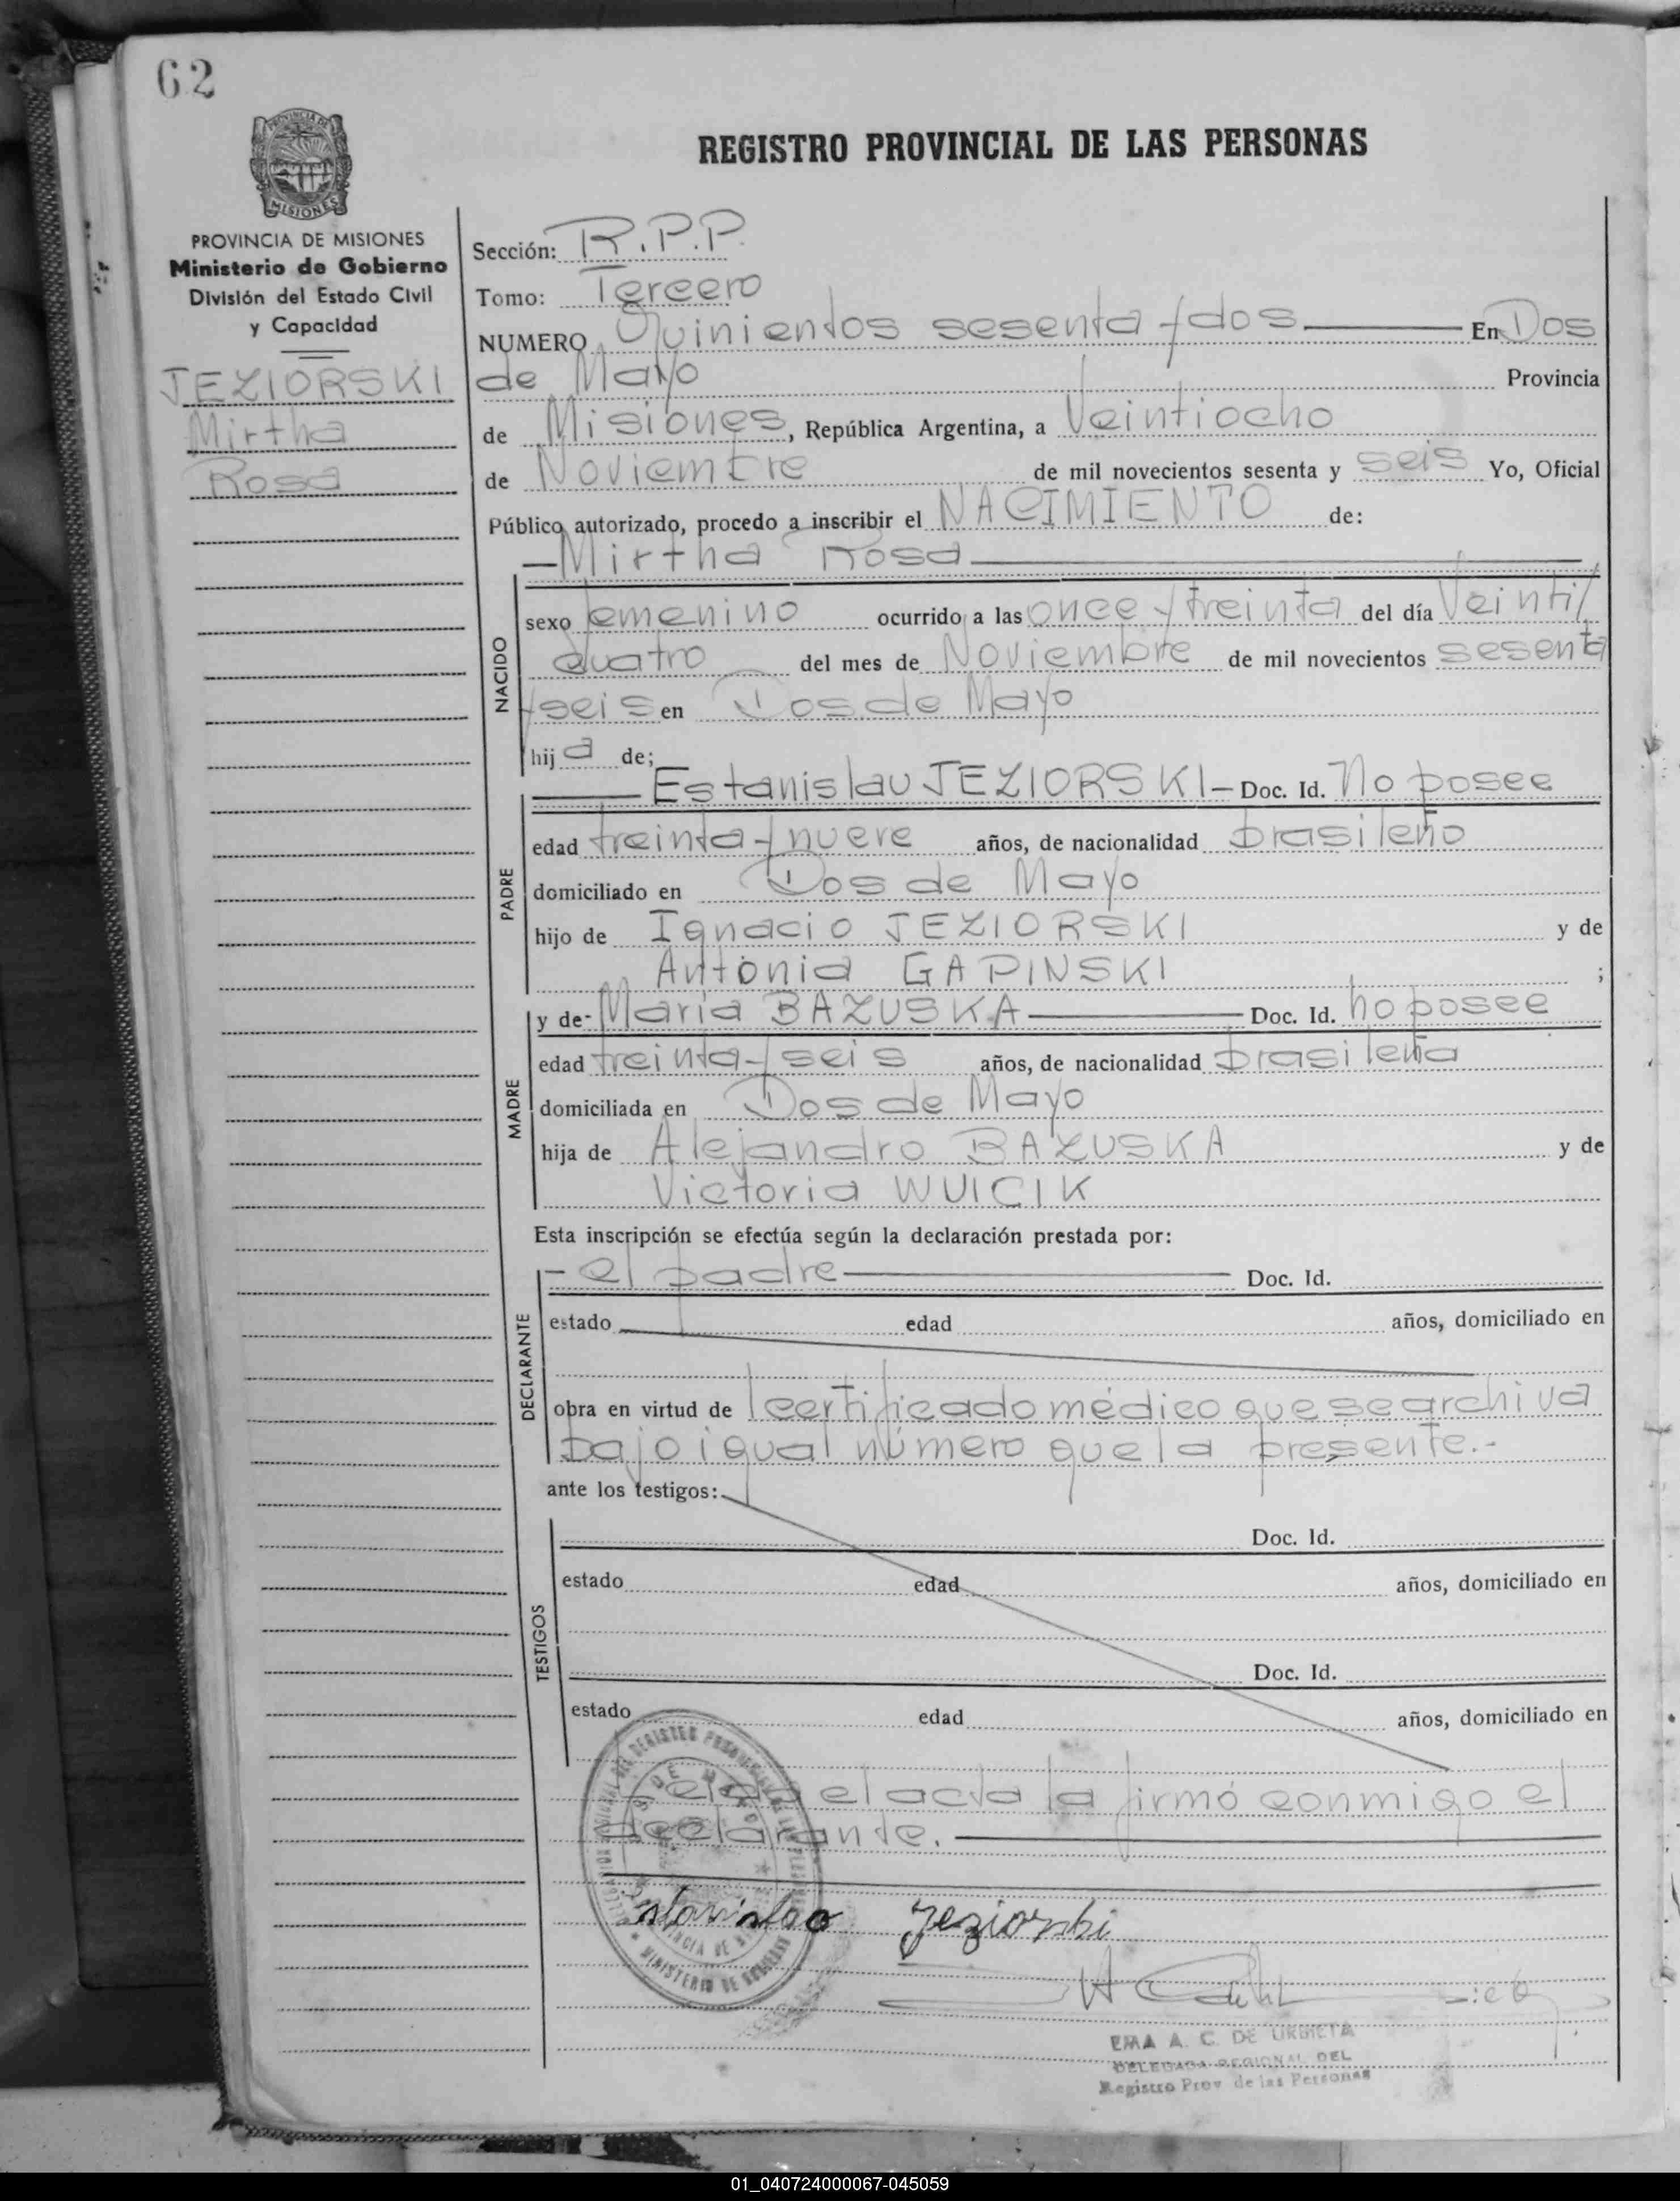 62
REGISTRO PROVINCIAL DE LAS PERSONAS
PROVINCIA DE MISIONES
MISIONES
PROVINCIA DE MISIONES
Ministerio de Gobierno
División del Estado Civil
y Capacidad
JEZIORSKI
Mirtha
Rosa
Sección: R.P.P.
Tomo: Tercero
NUMERO Quinientos sesenta y dos En Dos
de Mayo Provincia
de Misiones, República Argentina, a Veintiocho
de Noviembre de mil novecientos sesenta y seis Yo, Oficial
Público autorizado, procedo a inscribir el NACIMIENTO de:
Mirtha Rosa
NACIDO
sexo femenino ocurrido a las once y treinta del día Veinti/
cuatro del mes de Noviembre de mil novecientos sesenta
y seis en Dos de Mayo
hija de;
PADRE
Estanislau JEZIORSKI - Doc. Id. No posee
edad treinta y nueve años, de nacionalidad brasileño
domiciliado en Dos de Mayo
hijo de Ignacio JEZIORSKI y de
Antonia GAPINSKI ;
MADRE
y de María BAZUSKA Doc. Id. no posee
edad treinta y seis años, de nacionalidad brasileña
domiciliada en Dos de Mayo
hija de Alejandro BAZUSKA y de
Victoria WUICIK
Esta inscripción se efectúa según la declaración prestada por:
DECLARANTE
- el padre Doc. Id.
estado edad años, domiciliado en
obra en virtud de l certificado médico que se archiva
bajo igual número que la presente.-
ante los testigos:
TESTIGOS
Doc. Id.
estado edad años, domiciliado en
Doc. Id.
estado edad años, domiciliado en
el acta la firmó conmigo el
declarante.
MINISTERIO DE
Estanislao Jeziorski
EMA A. C. DE URBIETA
DELEGADA REGIONAL DEL
Registro Prov de las Personas
01_040724000067-045059